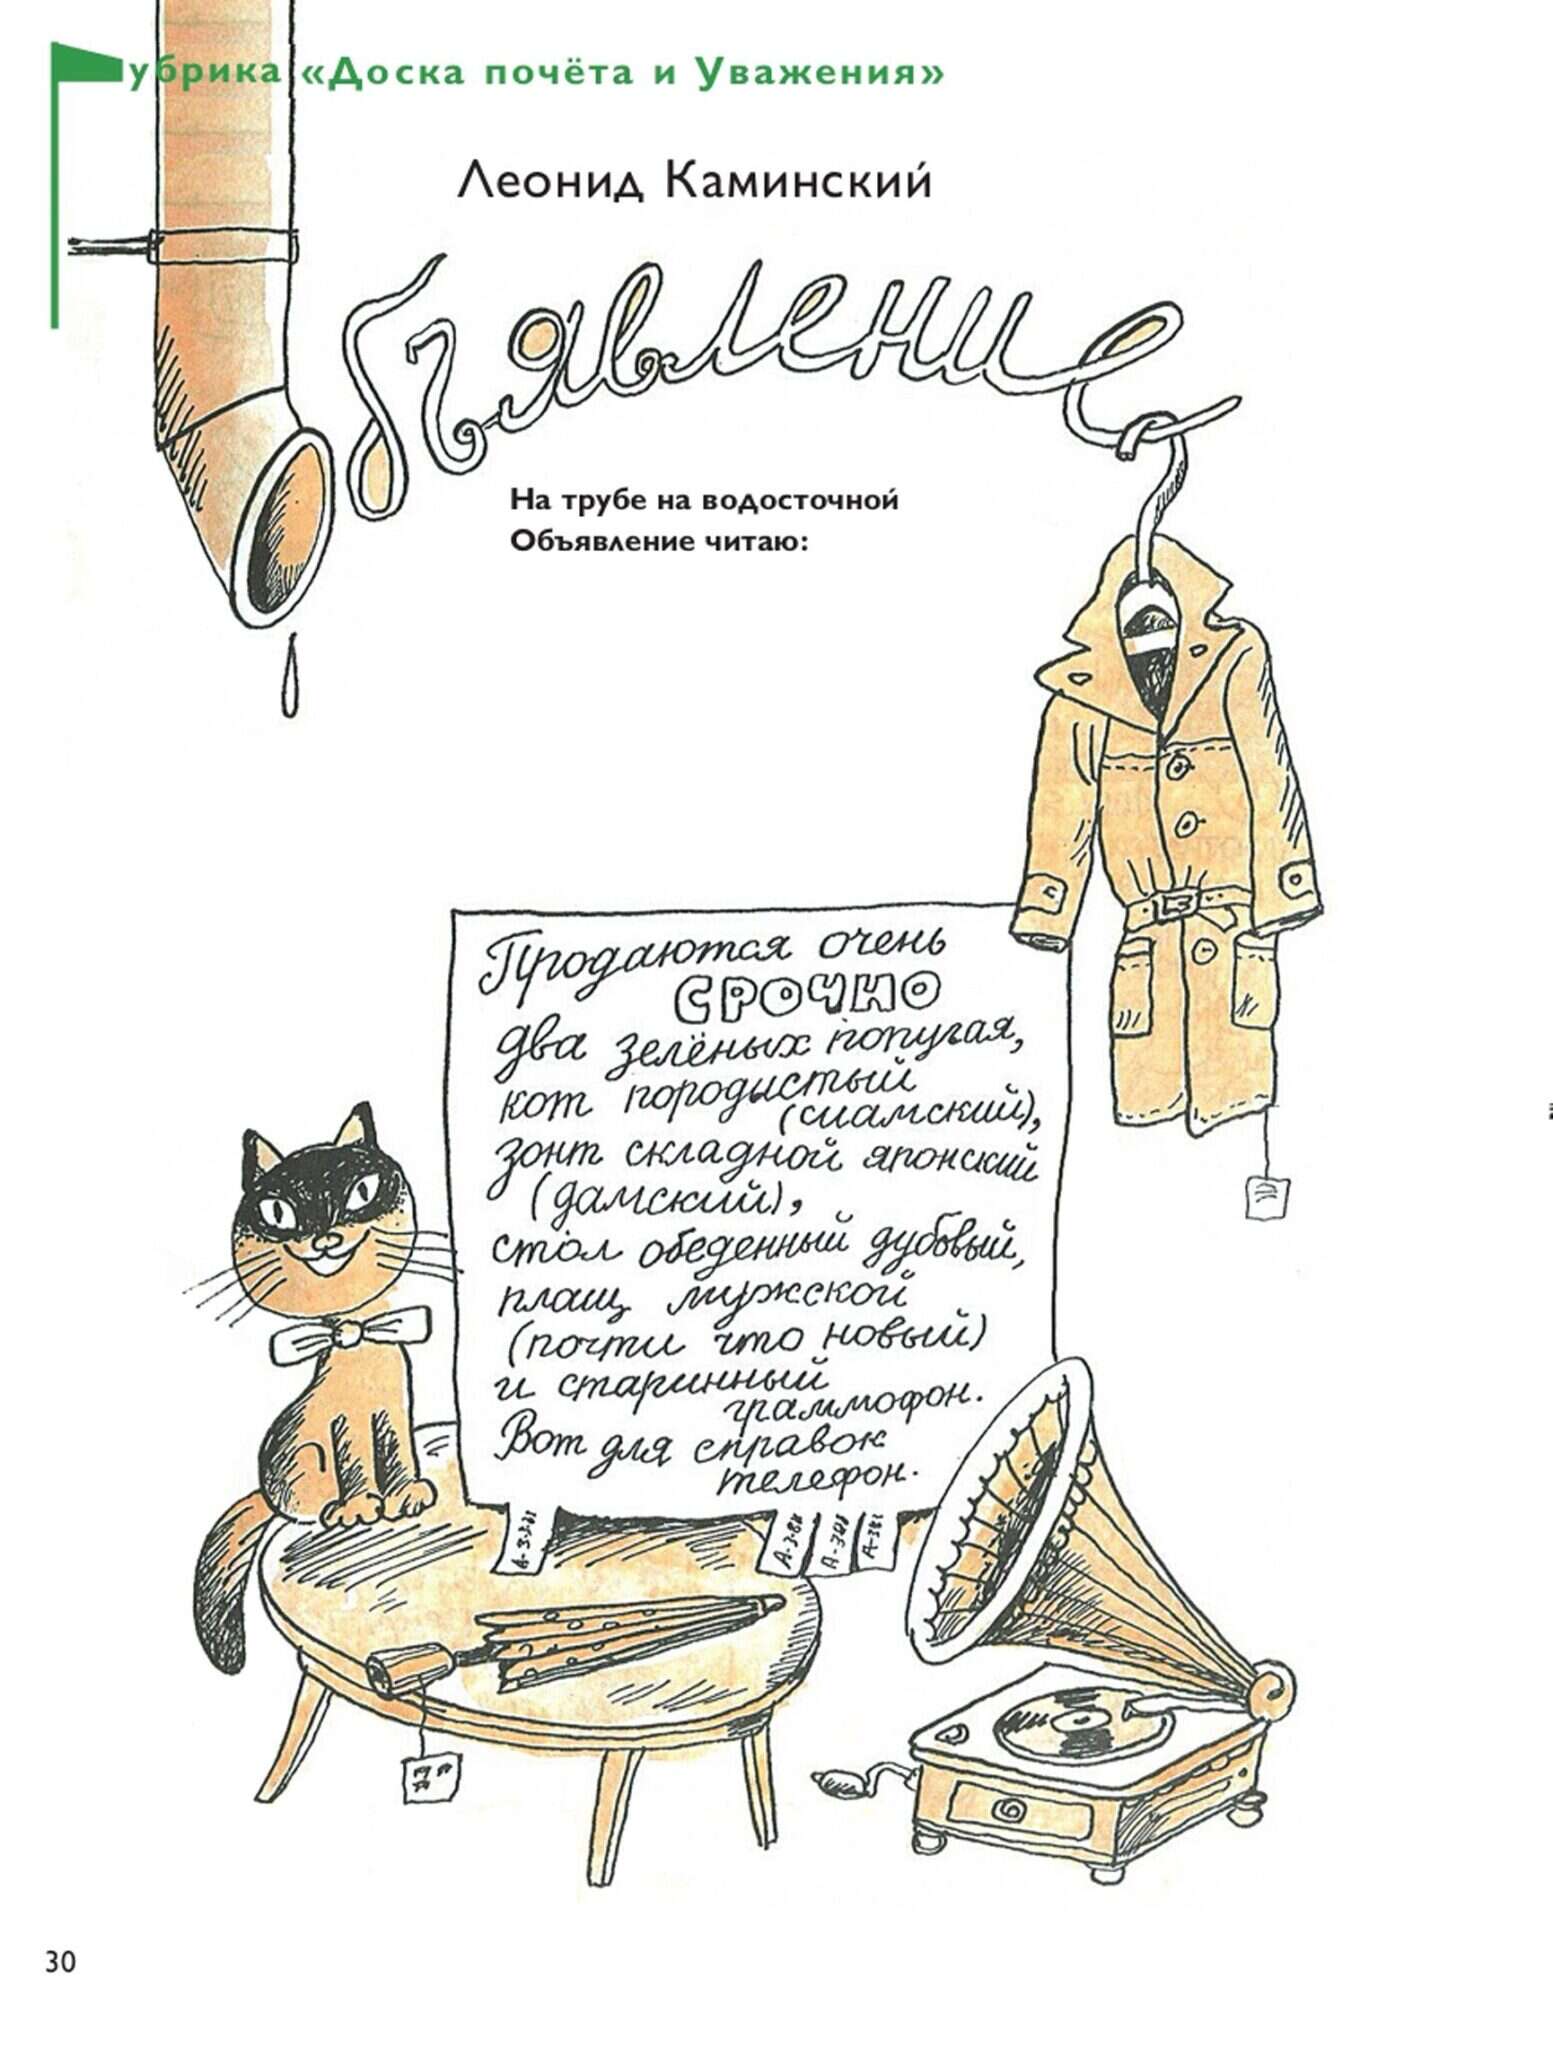 убрика «Доска почёта и Уважения»
Леонид Каминский
бъявление
На трубе на водосточной
Объявление читаю:
Продаются очень
СРОЧНО
два зелёных попугая,
кот породистый
(сиамский),
зонт складной японский
(дамский),
стол обеденный дубовый,
плащ мужской
(почти что новый)
и старинный
граммофон.
Вот для справок
телефон.
30